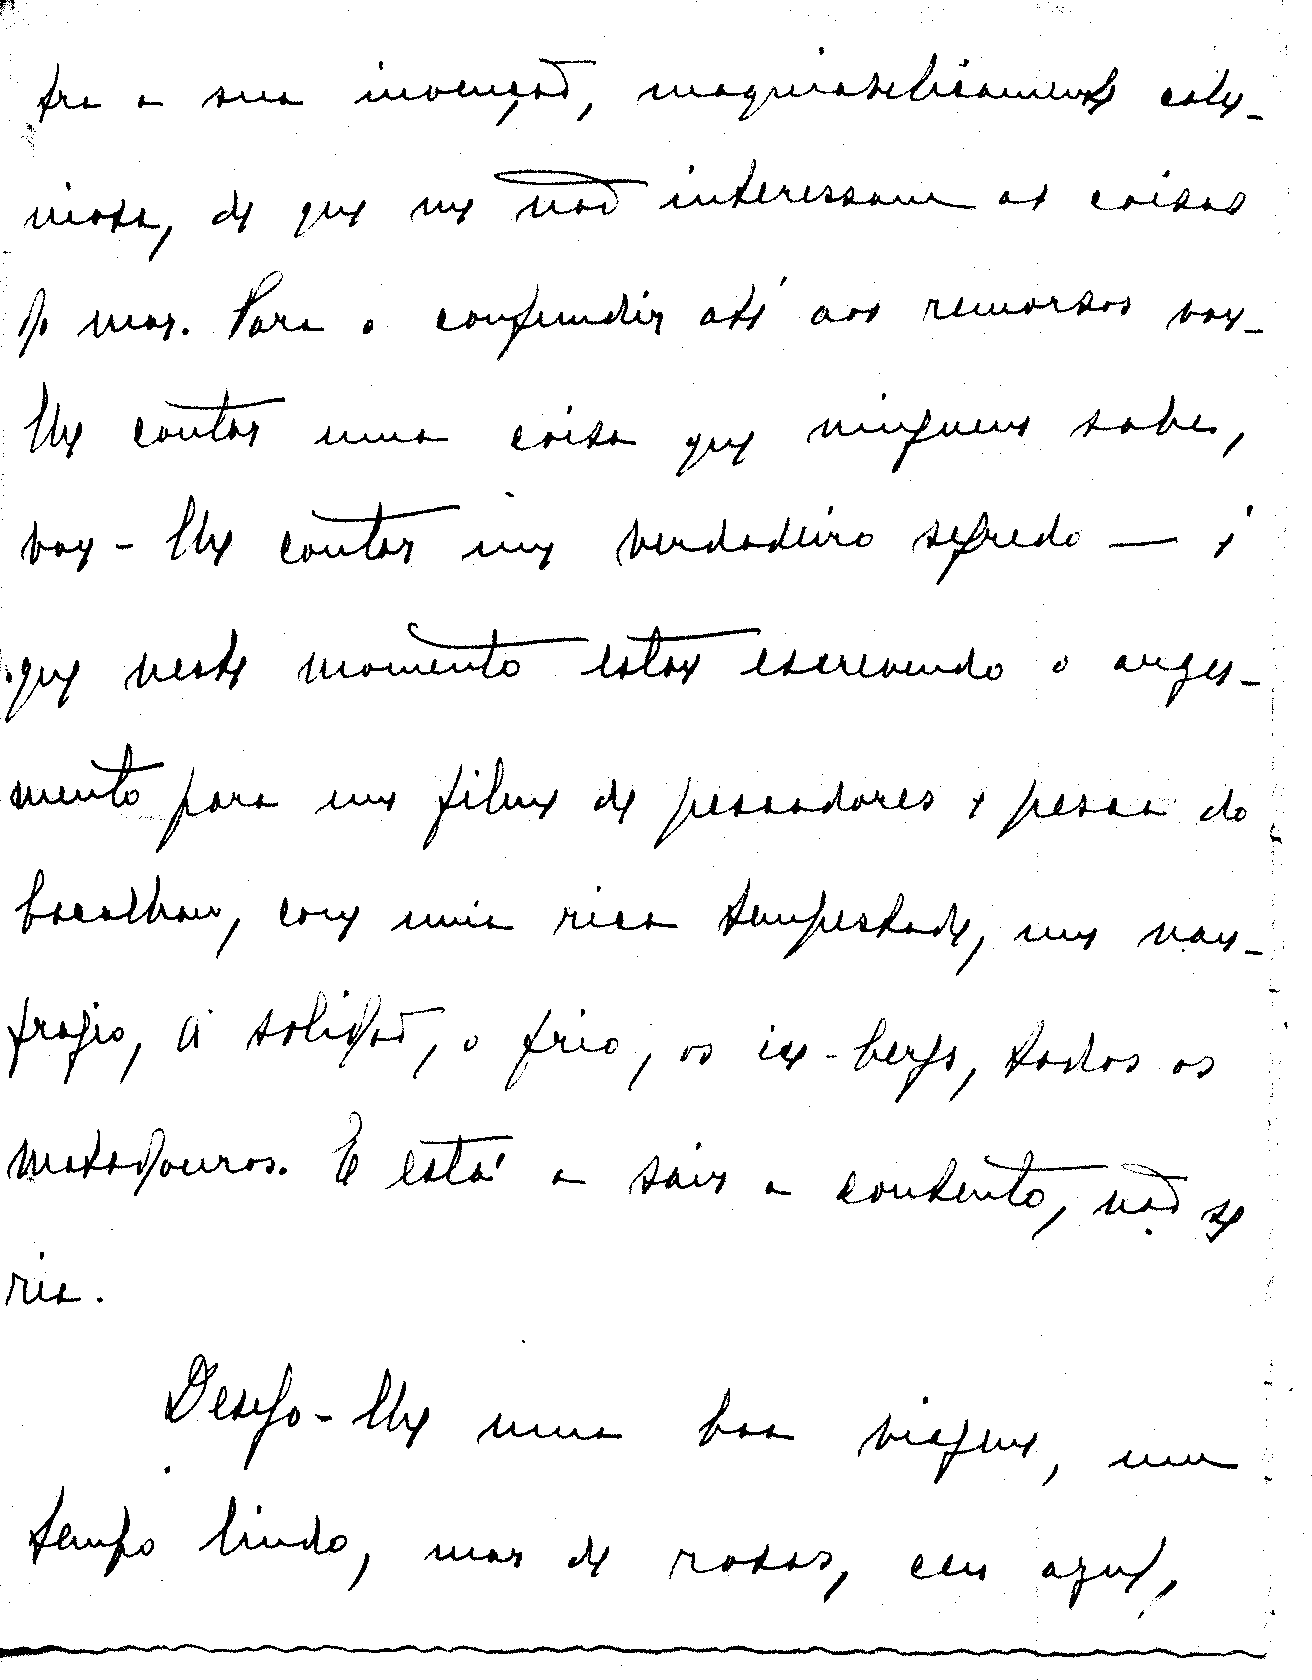 tra a sua invenção, maquiavelicamente calu-
niosa, de que me não interessam as coisas
do mar. Para o confundir até aos remorsos vou-
lhe contar uma coisa que ninguem sabe,
vou-lhe contar um verdadeiro segredo — é
que neste momento estou escrevendo o argu-
mento para um filme de pescadores e pesca do
bacalhau, com uma rica tempestade, um nau-
fragio, a solidão, o frio, os ice-bergs, todos os
matadouros. E está a sair a contento, não se
ria.
Desejo-lhe uma boa viagem, um
tempo lindo, mar de rosas, ceu azul,